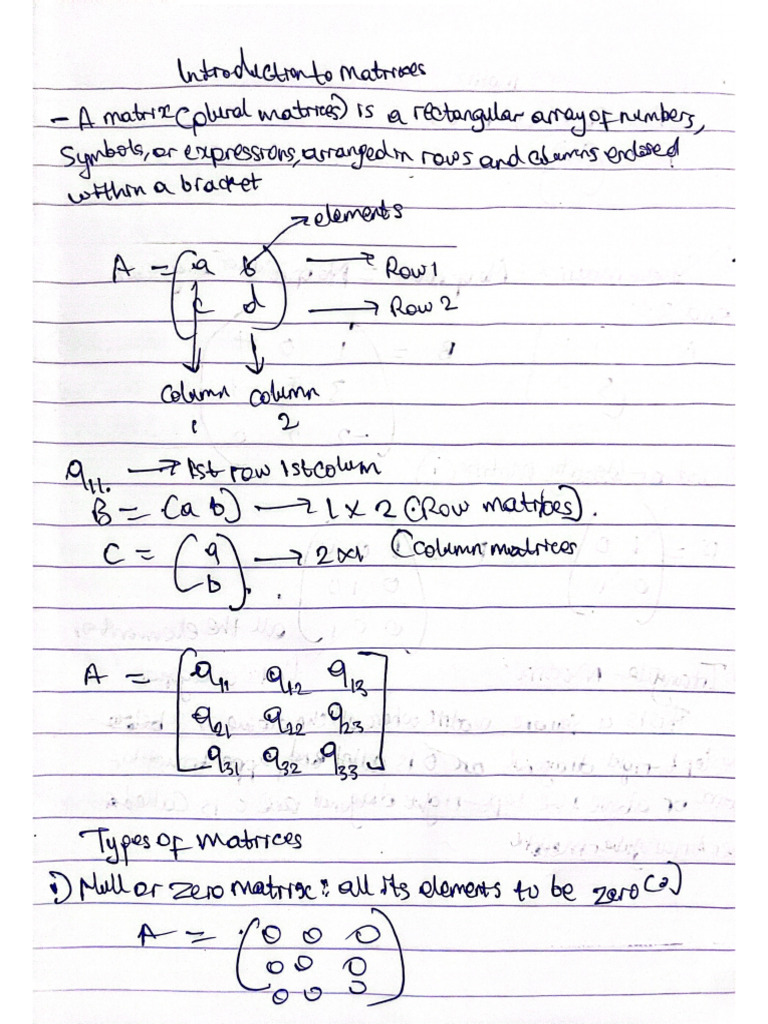 Introduction to matrices
- A matrix (plural matrices) is a rectangular array of numbers,
Symbols, or expressions, arranged in rows and columns enclosed
within a bracket
→ elements
A = (a b) → Row 1
(c d) → Row 2
Column column
1 2
a11. → 1st row 1st colum
B = (a b) → 1 x 2 (Row matrices).
C = (a → 2x1 (Column matrices
b).
A = [a11 a12 a13
a21 a22 a23
a31 a32 a33]
Types of matrices
i) Null or zero matrix: all its elements to be zero (0)
A = (0 0 0
0 0 0
0 0 0)